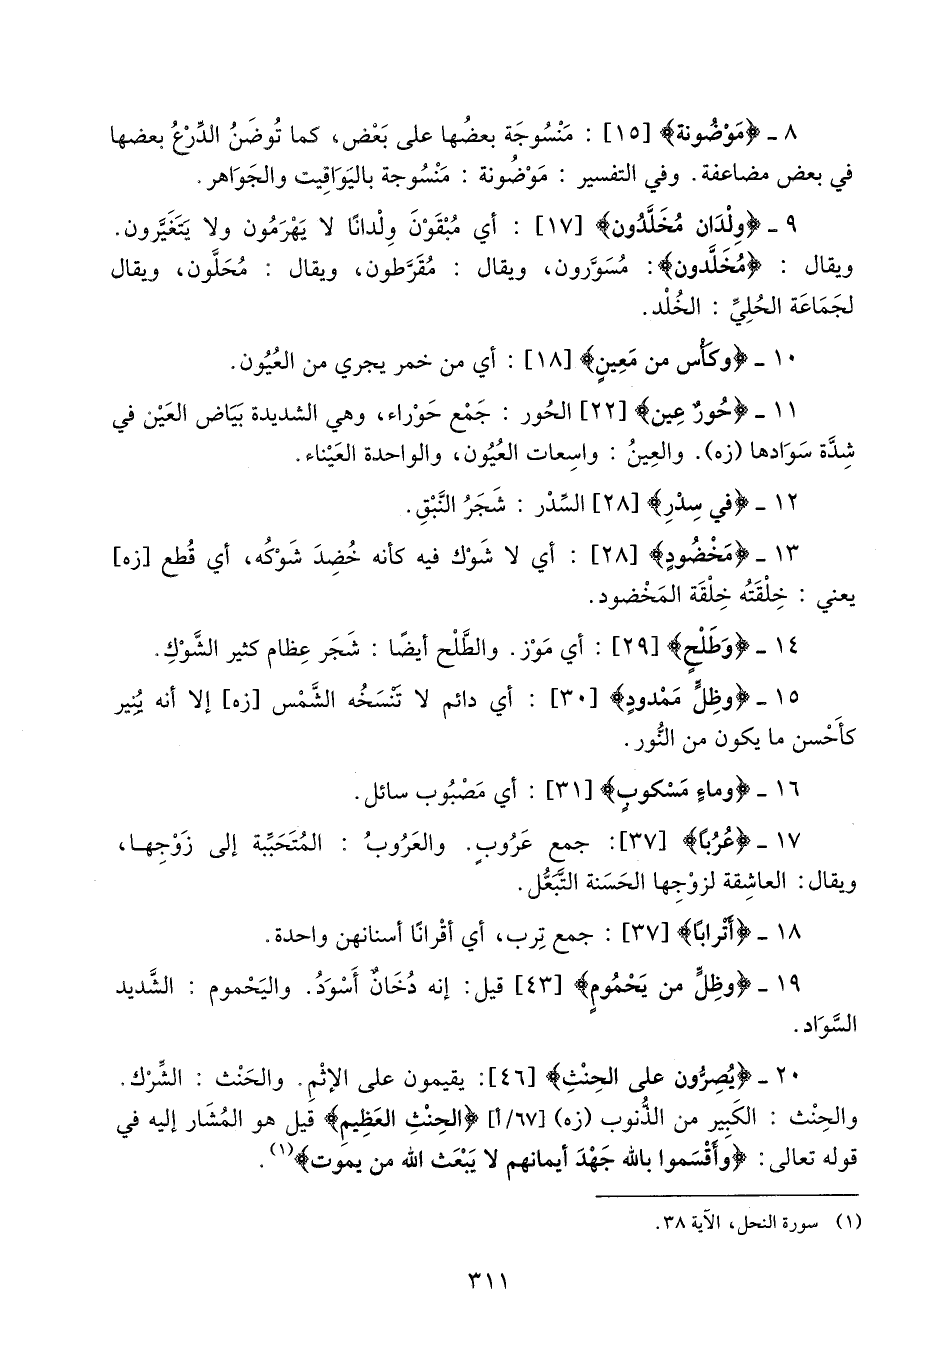 ٨ ـ ﴿مَوْضُونة﴾ [١٥] : مَنْسُوجَة بعضُها على بَعْض، كما تُوضَنُ الدِّرْعُ بعضها
في بعض مضاعفة. وفي التفسير : مَوْضُونة : مَنْسُوجة باليَوَاقِيت والجَوَاهر.
٩ ـ ﴿وِلْدَان مُخَلَّدُون﴾ [١٧] : أي مُبْقَوْنَ وِلْدانًا لا يَهْرَمُون ولا يَتَغَيَّرون.
ويقال : ﴿مُخَلَّدون﴾: مُسَوَّرون، ويقال : مُقَرَّطون، ويقال : مُحَلَّون، ويقال
لجَمَاعَة الحُلِيِّ : الخُلْد.
١٠ ـ ﴿وكَأْس من مَعِينٍ﴾ [١٨] : أي من خمر يجري من العُيُون.
١١ ـ ﴿حُورٌ عِين﴾ [٢٢] الحُور : جَمْع حَوْراء، وهي الشديدة بَيَاض العَيْن في
شِدَّة سَوَادها (زه). والعِينُ : واسِعات العُيُون، والواحدة العَيْناء.
١٢ ـ ﴿في سِدْرِ﴾ [٢٨] السِّدْر : شَجَرُ النَّبْقِ.
١٣ ـ ﴿مَخْضُودٍ﴾ [٢٨] : أي لا شَوْك فيه كأنه خُضِدَ شَوْكُه، أي قُطع [زه]
يعني : خِلْقَتُه خِلْقَة المَخْضود.
١٤ ـ ﴿وَطَلْحٍ﴾ [٢٩] : أي مَوْز. والطَّلْح أيضًا : شَجَر عِظام كثير الشَّوْكِ.
١٥ ـ ﴿وظِلٍّ مَمْدودٍ﴾ [٣٠] : أي دائم لا تَنْسَخُه الشَّمْس [زه] إلا أنه يُنِير
كأَحْسن ما يكون من النُّور.
١٦ ـ ﴿وماءٍ مَسْكوبٍ﴾ [٣١] : أي مَصْبُوب سائل.
١٧ ـ ﴿عُرُبًا﴾ [٣٧]: جمع عَرُوبٍ. والعَرُوبُ : المُتَحَبِّبة إلى زَوْجِها،
ويقال: العاشِقة لزوْجِها الحَسَنة التَّبَعُّل.
١٨ ـ ﴿أَتْرابًا﴾ [٣٧] : جمع تِرب، أي أقْرانًا أسنانهن واحدة.
١٩ ـ ﴿وظِلٍّ من يَحْمُومٍ﴾ [٤٣] قيل: إنه دُخَانٌ أَسْوَدُ. واليَحْموم : الشَّديد
السَّوَاد.
٢٠ ـ ﴿يُصِرُّون على الحِنْثِ﴾ [٤٦]: يقيمون على الإثْمِ. والحَنْث : الشِّرْك.
والحِنْث : الكَبِير من الذُّنوب (زه) [٦٧/أ] ﴿الحِنْثِ العَظِيم﴾ قيل هو المُشَار إليه في
قوله تعالى: ﴿وأَقْسَموا بالله جَهْدَ أيمانهم لا يَبْعَث الله من يموت﴾(١).
(١) سورة النحل، الآية ٣٨.
٣١١